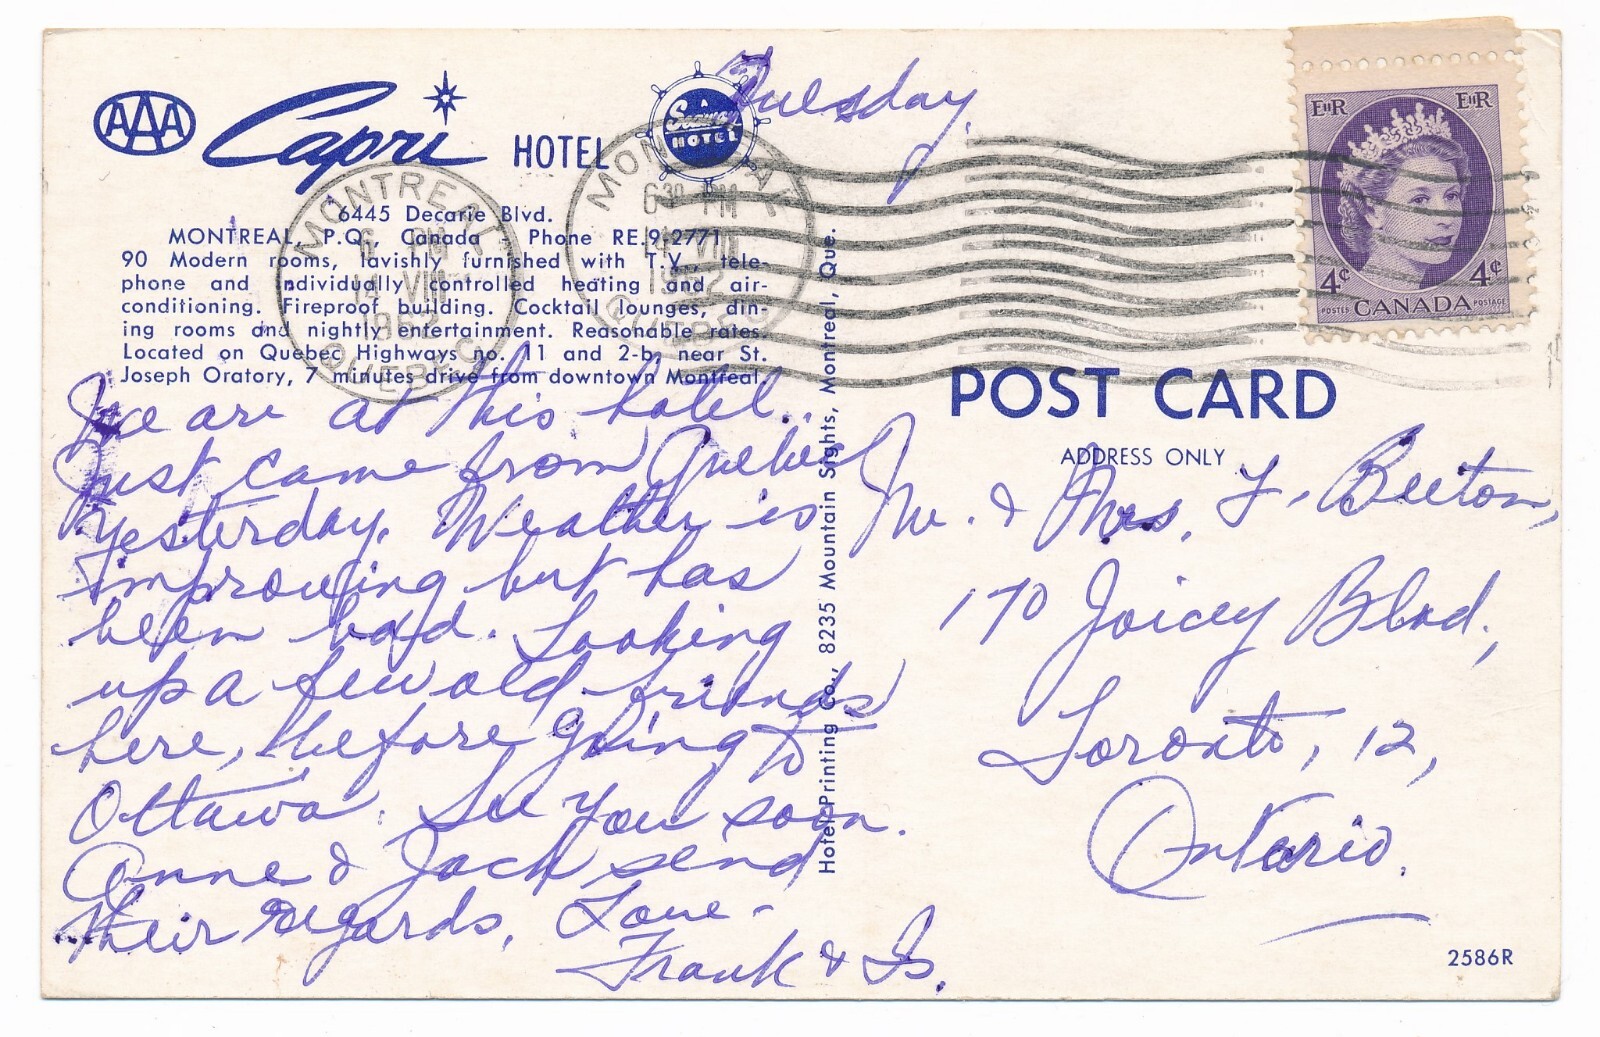 AAA Capri HOTEL
A Seaway HOTEL
Tuesday.
6445 Decarie Blvd.
MONTREAL, P.Q., Canada Phone RE.9-2771
90 Modern rooms, lavishly furnished with T.V., tele-
phone and individually controlled heating and air-
conditioning. Fireproof building. Cocktail lounges, din-
ing rooms and nightly entertainment. Reasonable rates.
Located on Quebec Highways no. 11 and 2-b, near St.
Joseph Oratory, 7 minutes drive from downtown Montreal.
MONTREAL
6 PM
14 VIII
1962
QUEBEC
MONTREAL
6 30 PM
VIII
1962
QUEBEC
We are at this hotel.
Just came from Quebec
yesterday. Weather is
improving but has
been bad. Looking
up a few old friends
here, before going to
Ottawa. See you soon.
Anne & Jack send
their regards, Love -
Frank & Is.
Hotel Printing Co., 8235 Mountain Sights, Montreal, Que.
EIIR EIIR
4¢ 4¢
POSTES CANADA POSTAGE
POST CARD
ADDRESS ONLY
Mr. & Mrs. F. Beeton,
170 Joicey Blvd.,
Toronto, 12,
Ontario.
2586R